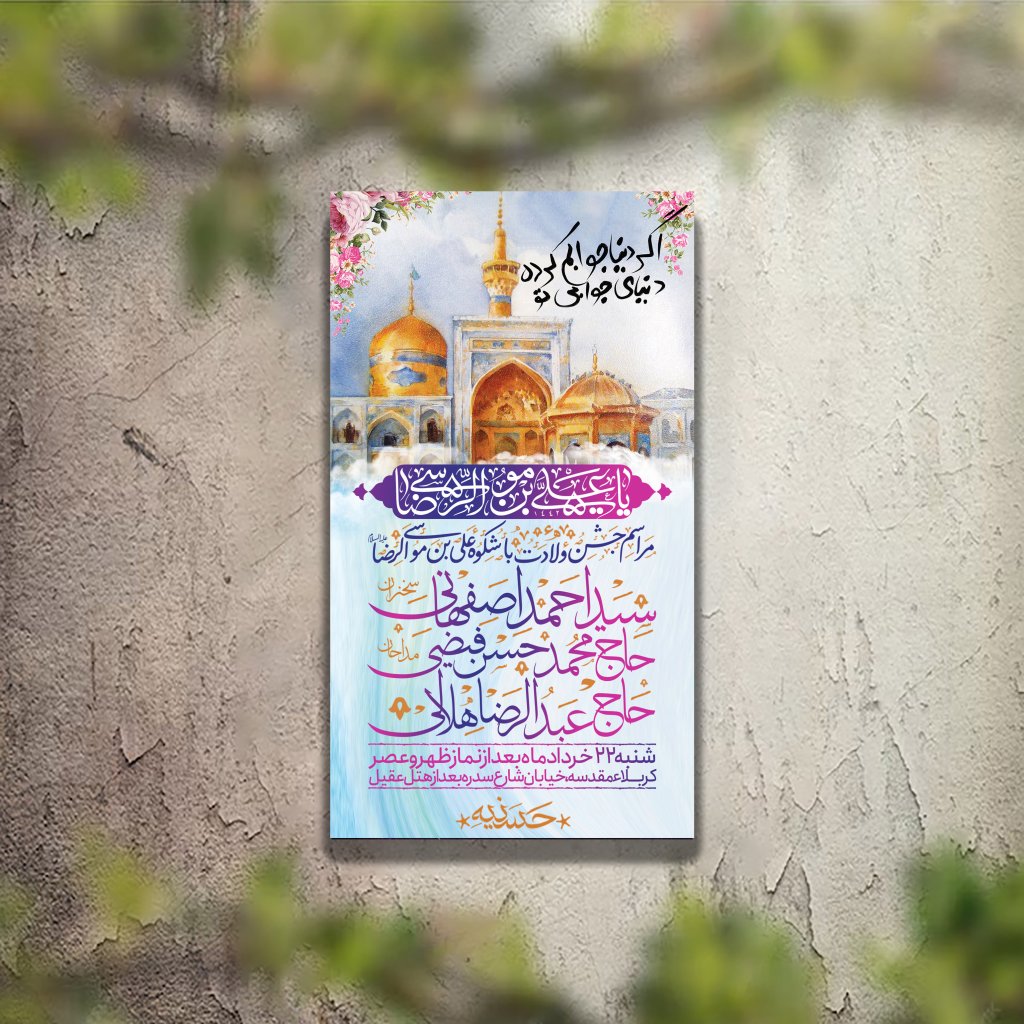 اگر دنیا جوابم کرده
دنیای جوابمی تو
یا علی بن موسی الرضا
۱۴۴۳
مراسم جشن ولادت باشکوه علی بن موسی الرضا علیه السلام
سخنران
سید احمد اصفهانی
حاج محمد حسن فیضی
مداحان
حاج عبدالرضا هلالی
شنبه ۲۲ خرداد ماه بعد از نماز ظهر و عصر
کربلاء مقدسه، خیابان شارع سدره بعد از هتل عقیل
حسنیه